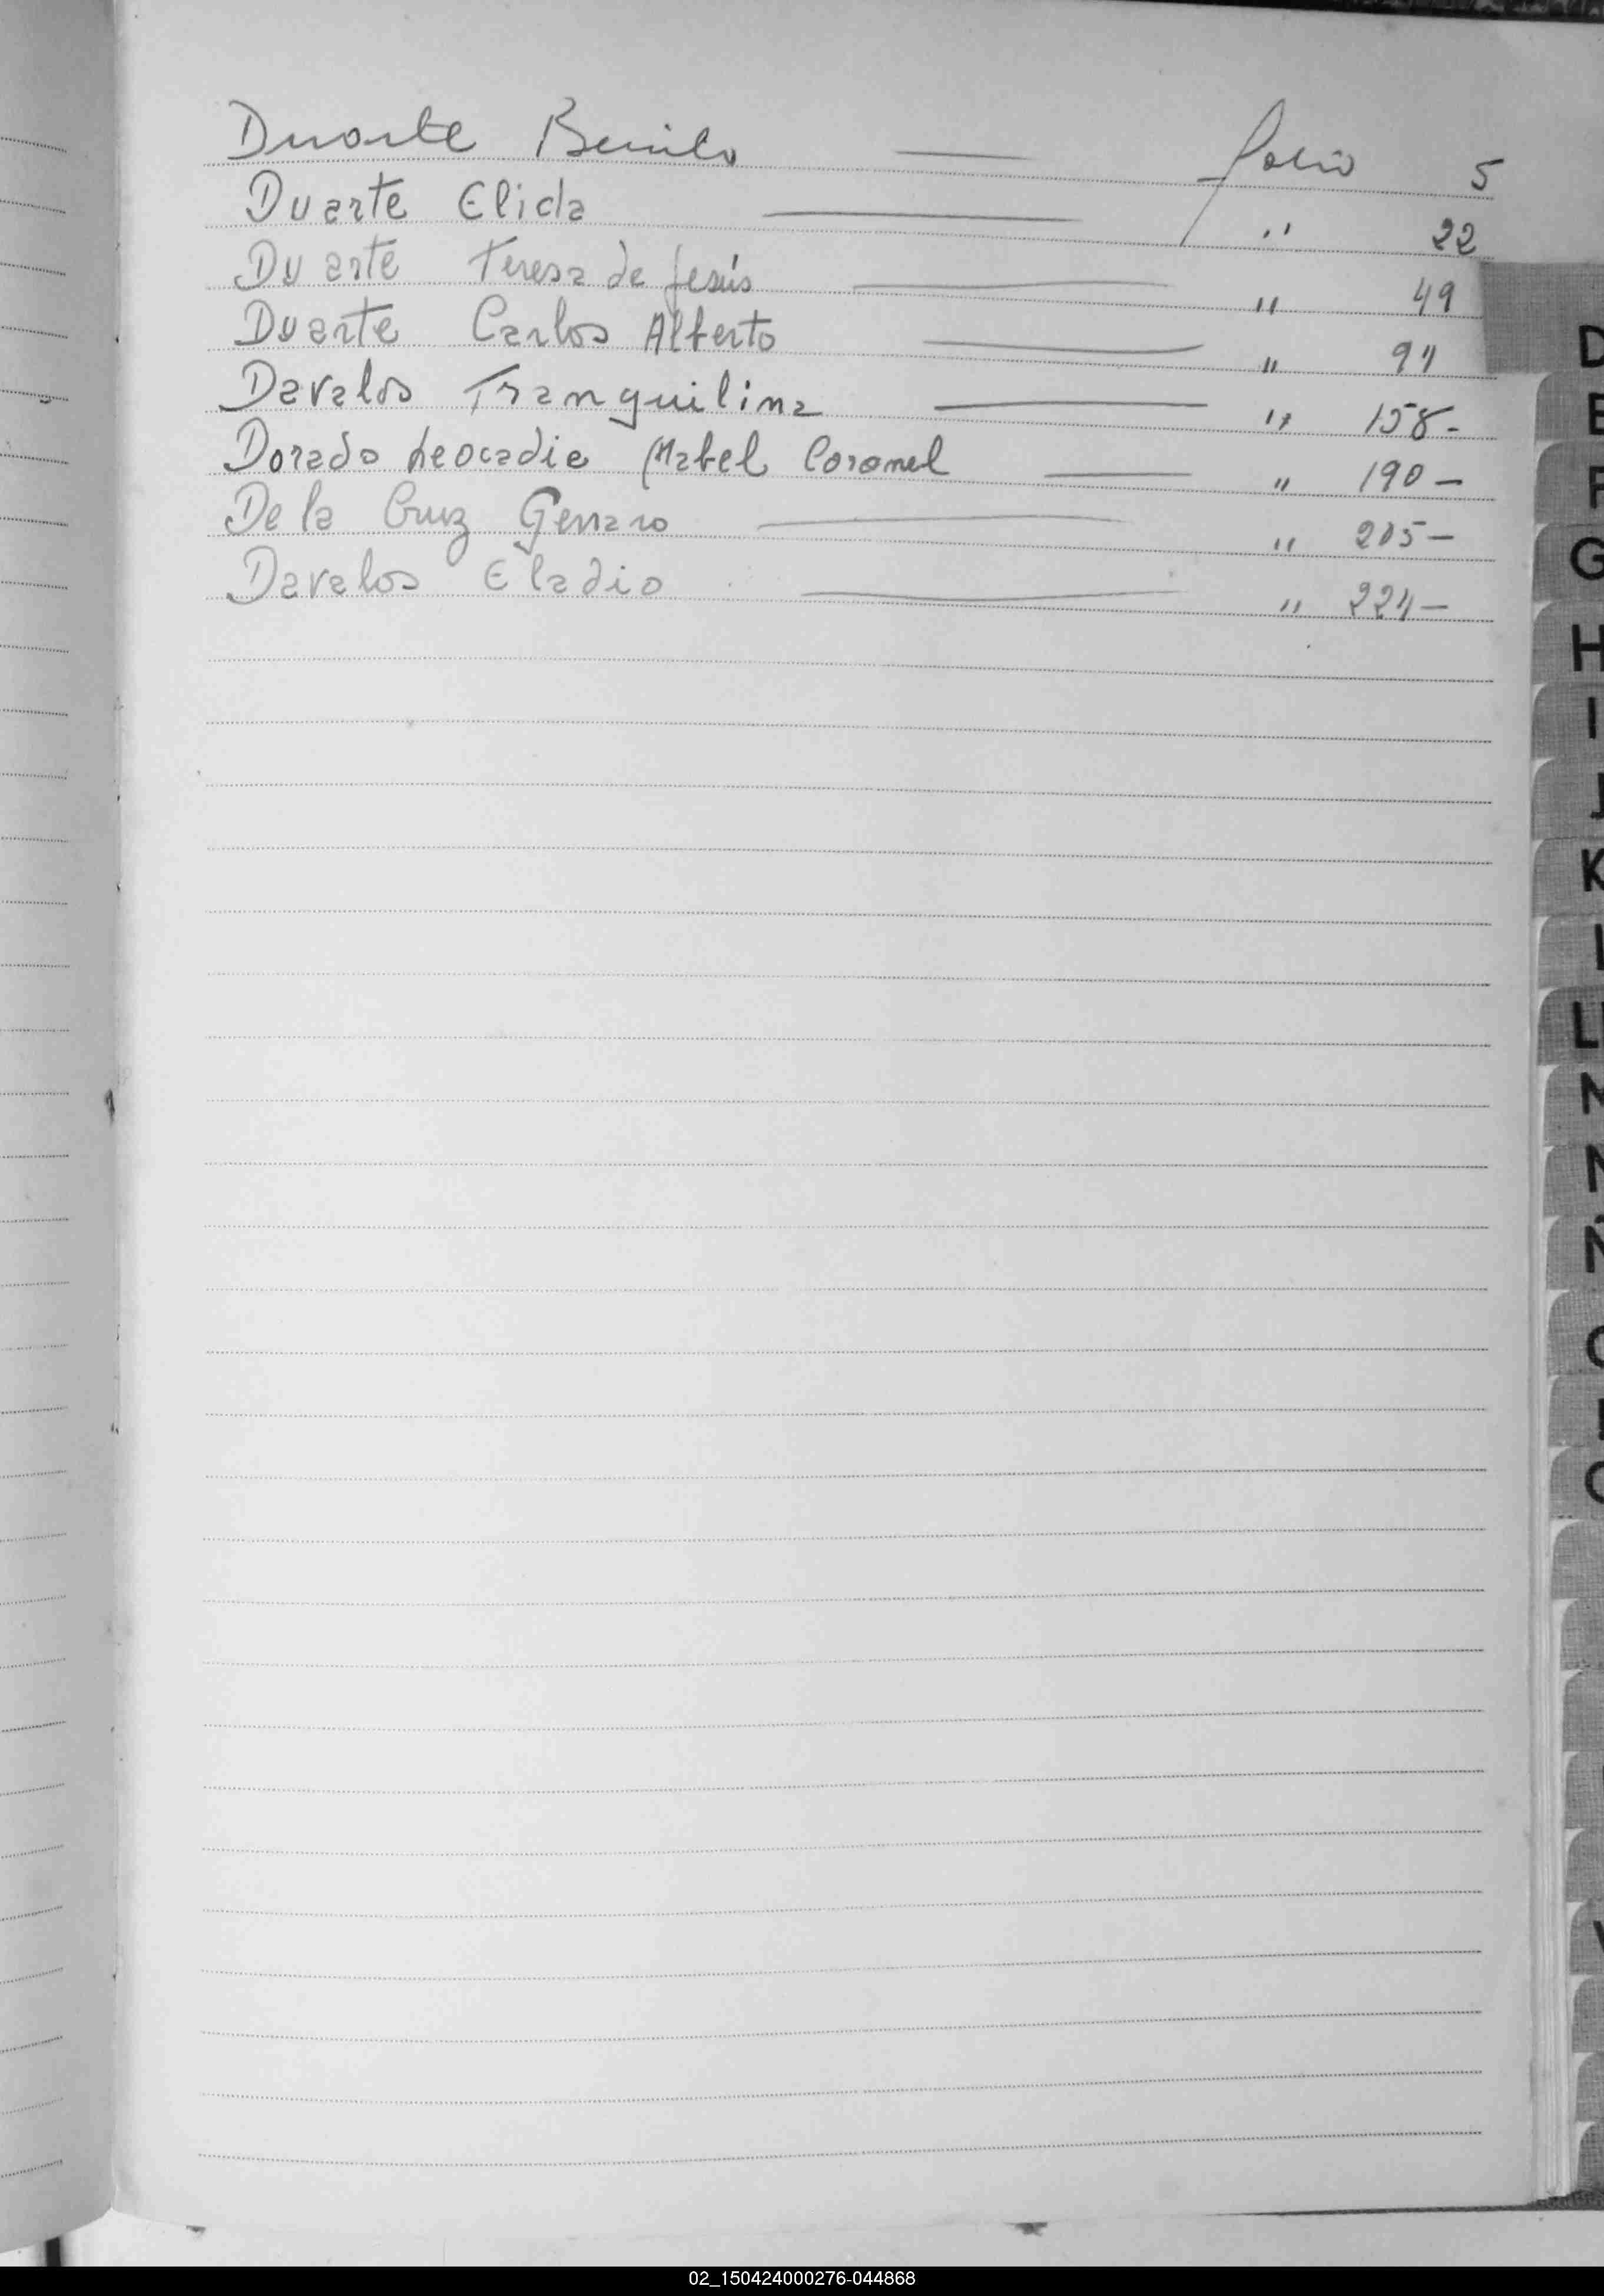 Duarte Benito — folio 5
Duarte Elida — " 22
Duarte Teresa de Jesús — " 49
Duarte Carlos Alberto — " 94
Davalos Tranquilina — " 158-
Dorado Leocadie Mabel Coronel — " 190-
De la Cruz Genaro — " 205-
Davalos Eladio — " 224-
D
E
F
G
H
I
J
K
L
LL
M
N
Ñ
O
P
Q
02_150424000276-044868